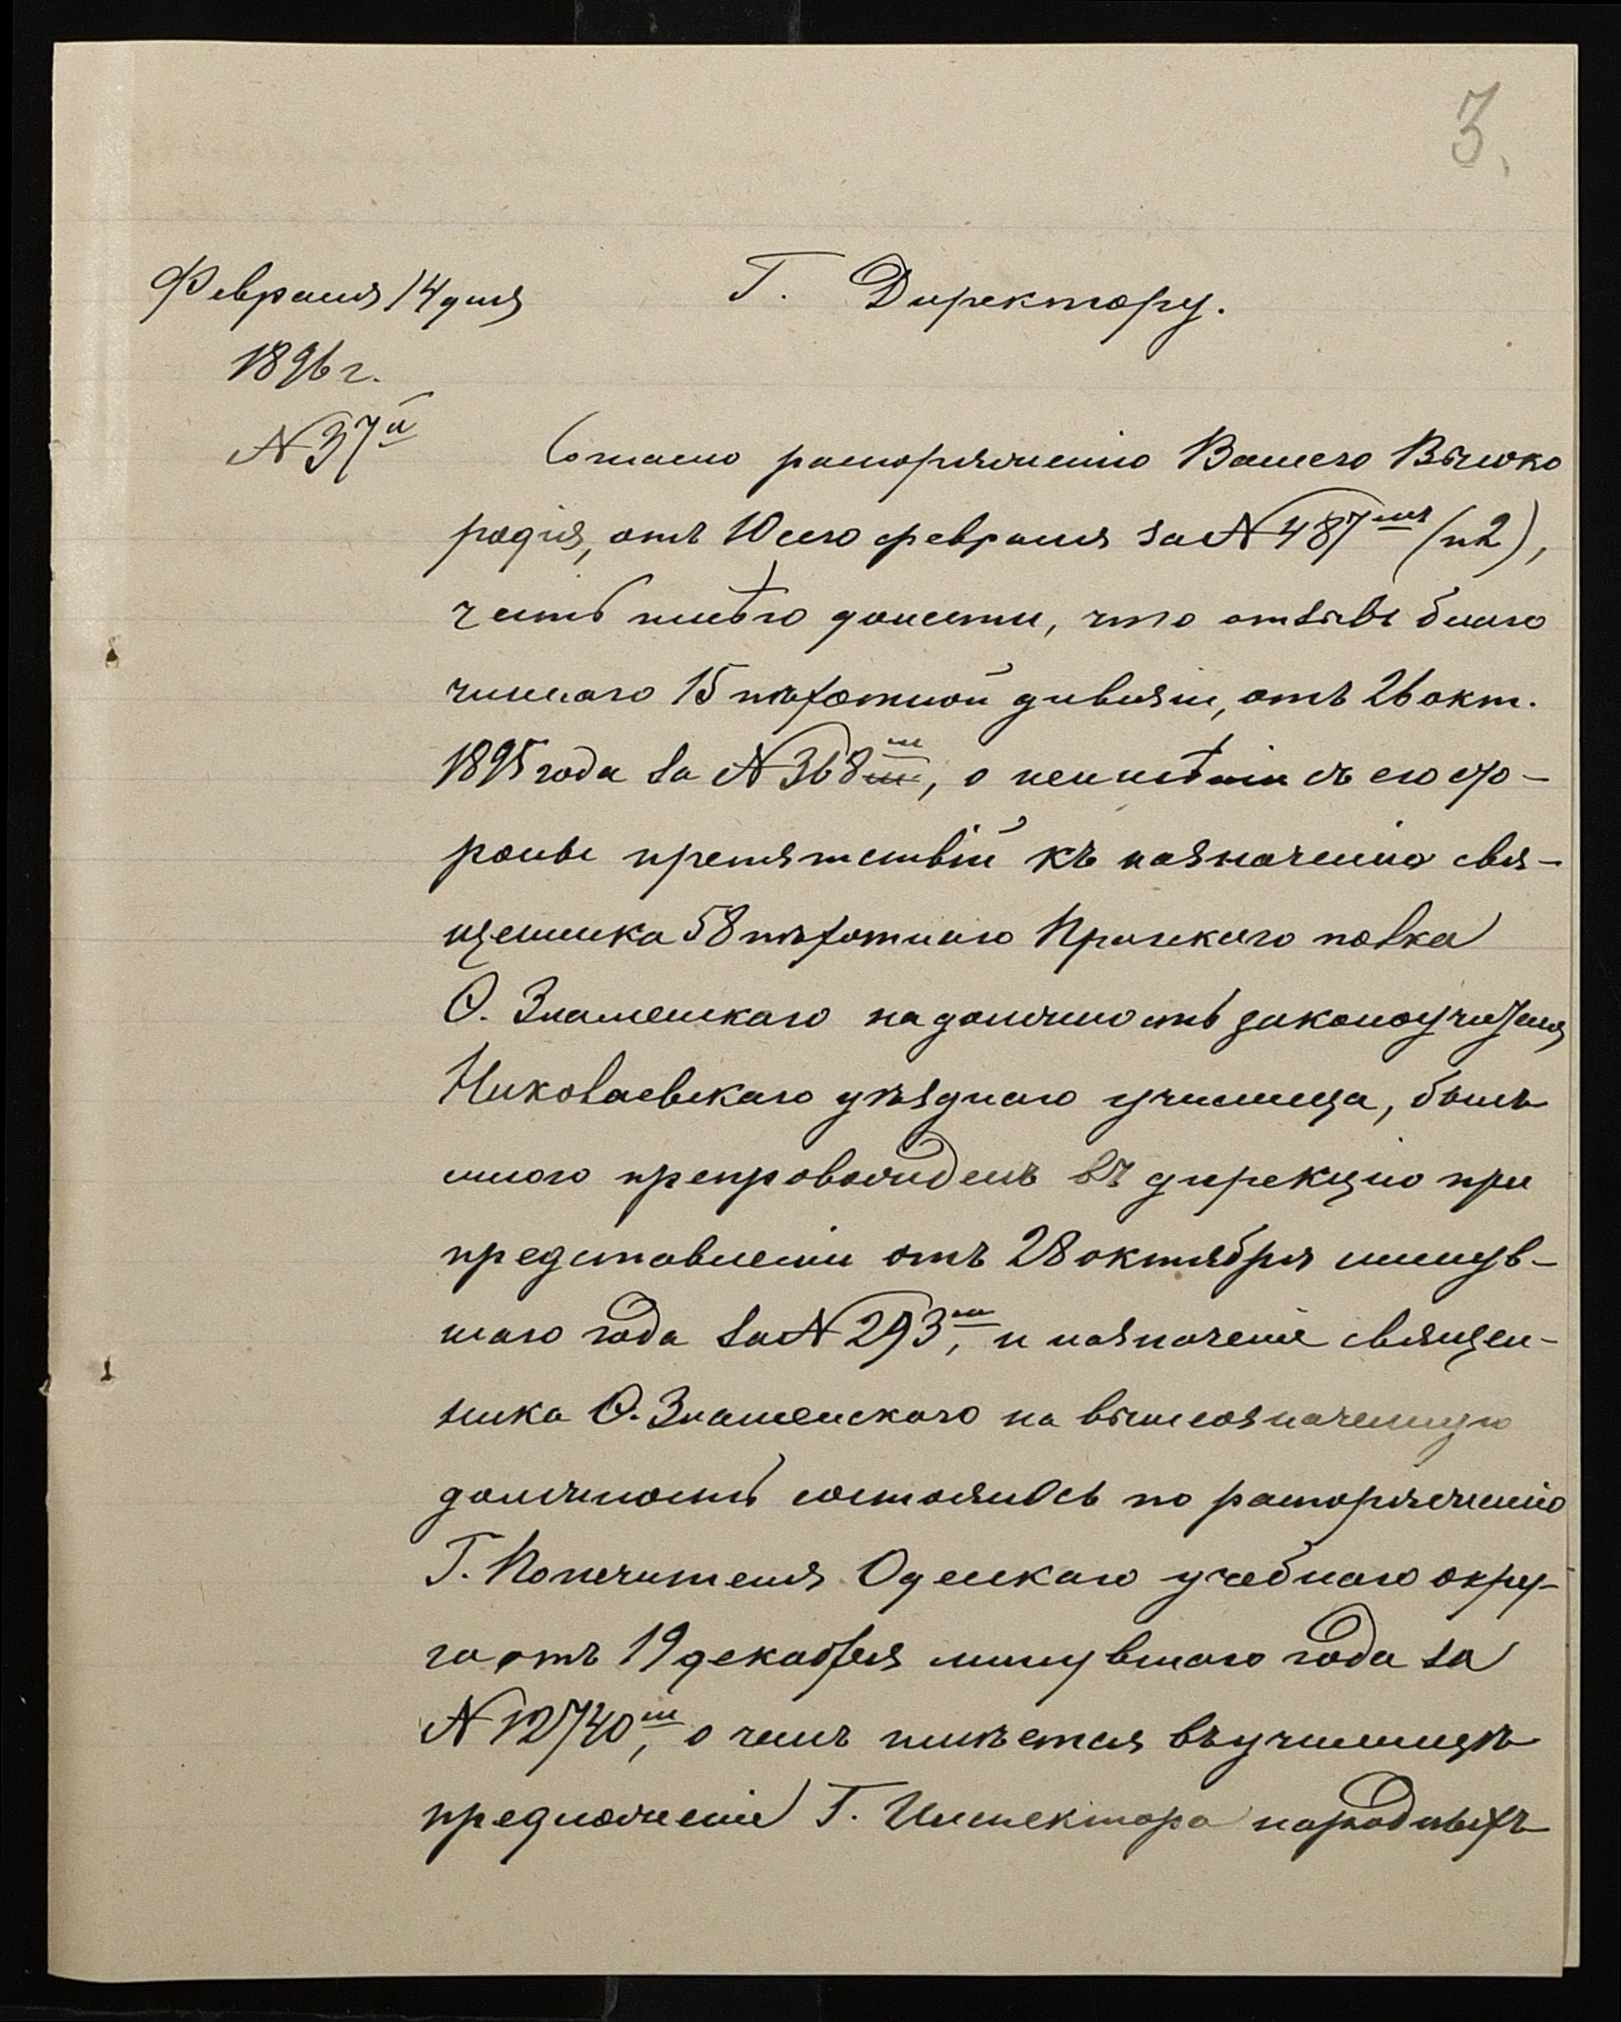 3.
Февраля 14 дня
1896 г.
№ 37й
Г. Директору.
Согласно распоряженію Вашего Высоко
родія, отъ 10 сего февраля за № 487мъ (п 2),
честь имѣю донести, что отзывъ благо
чиннаго 15 пѣхотной дивизіи, отъ 26 окт.
1895 года за № 368м, о неимѣніи съ его сто-
роны препятствій къ назначенію свя-
щенника 58 пѣхотнаго Прагскаго полка
О. Знаменскаго на должность законоучителя
Николаевскаго уѣзднаго училища, былъ
мною препровожденъ въ дирекцію при
представленіи отъ 28 октября минув-
шаго года за № 293м, и назначеніе священ-
ника О. Знаменскаго на вышеозначенную
должность состоялось по распоряженію
Г. Попечителя Одесскаго учебнаго окру-
га отъ 19 декабря минувшаго года за
№ 12740м, о чемъ имѣется въ училищѣ
предложеніе Г. Инспектора народныхъ